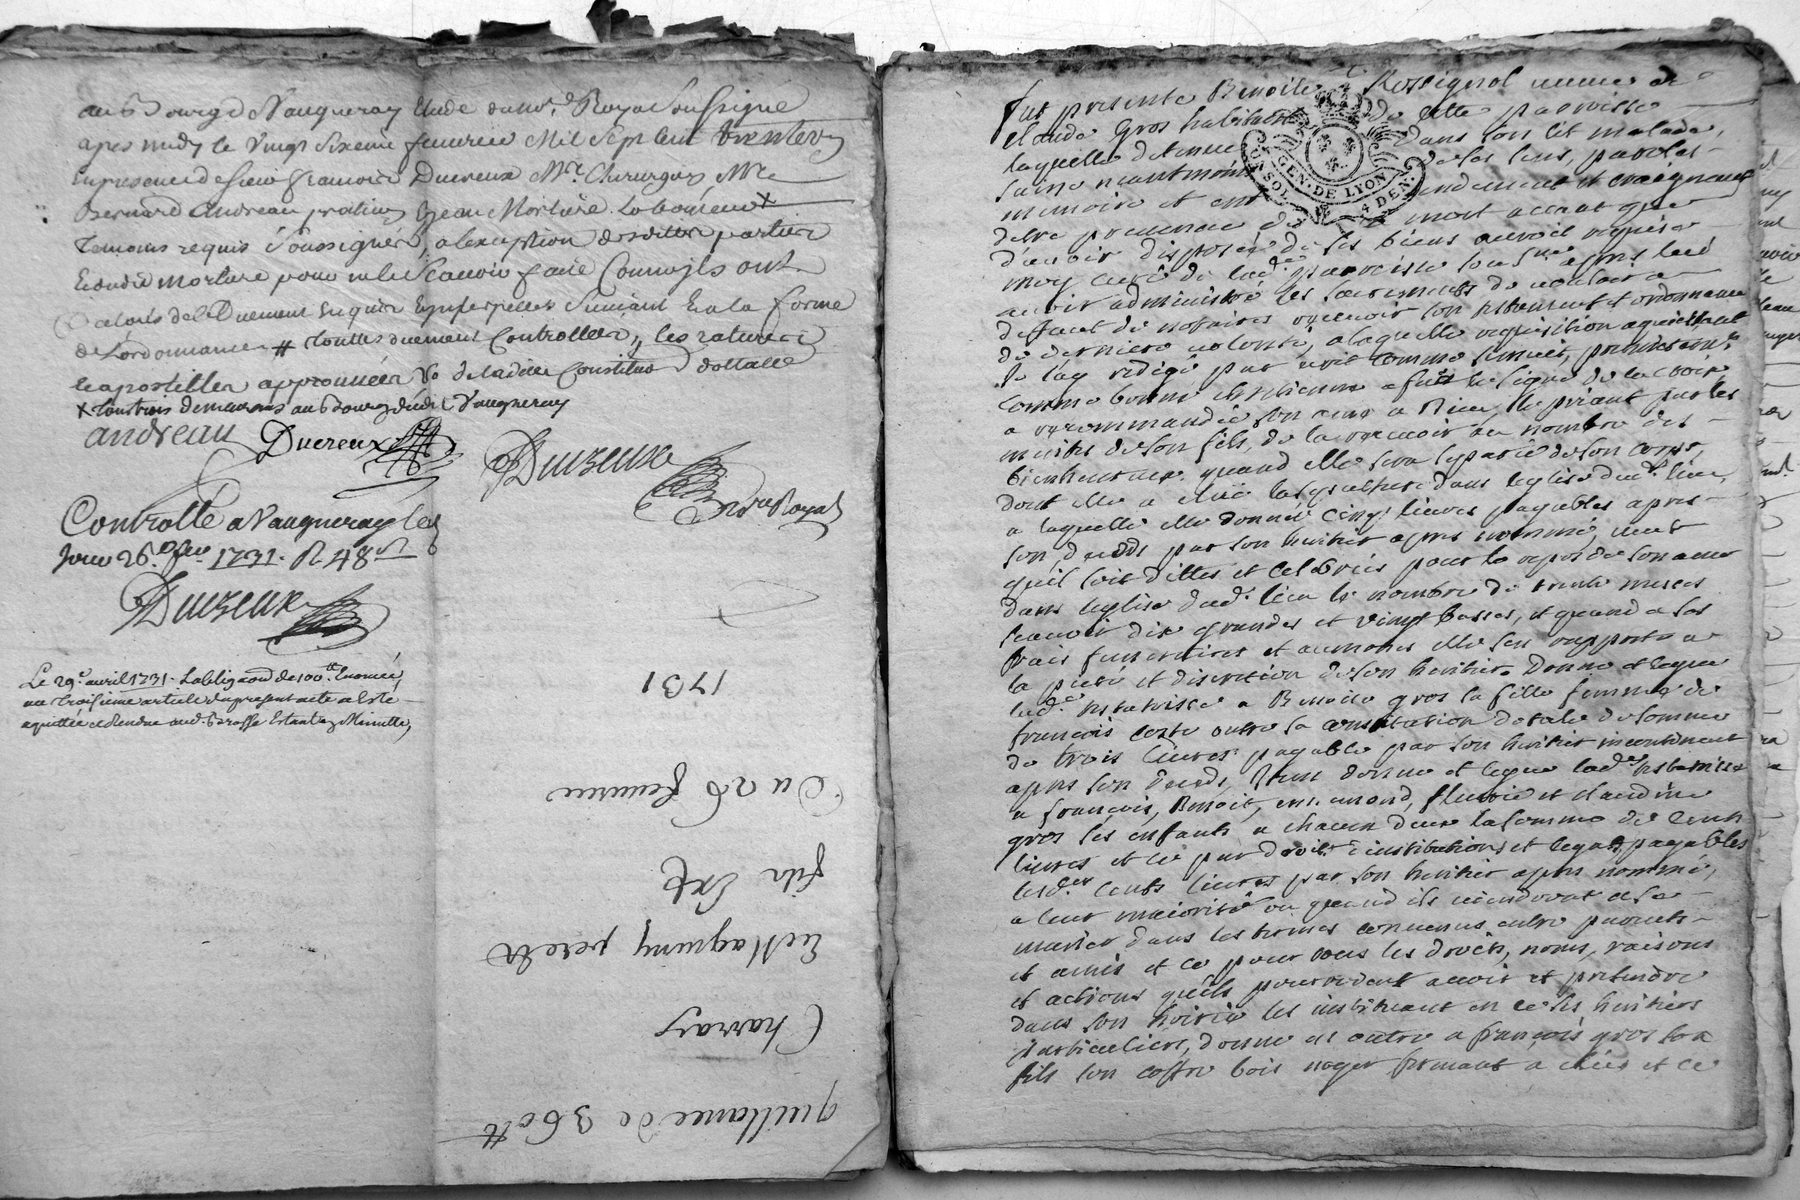 au Bourg de Vaugneray Etude du no.re Royal soussigné
apres midy le vingt sixieme feuvrier Mil sept cent trente et un
En presence de sieur francois Ducreux M.e Chirurgien M.re
Bernard Andreau praticien Et jean Morliere Laboureur +
temoins requis soussignés, a lexception desdittes parties
Et dudit Morliere pour ne le scavoir faire Comme jls ont
declaré de ce Duement Enquis Et jnterpellés suivant la forme
de Lordonnance # touttes duement Controllees, les ratures
les apostilles approuvées de ladite Constitution dottalle
+ tous trois demeurans au bourg dudit Vaugneray
andreau Ducreux
Duczeux
No.re Royal
Controllé a Vaugneray le
jour 26.e feu. 1731. R. 48 s
Duczeux
Le 29.e avril 1731. Lobligaon de 100 tt Enoncée
au troisieme article du present acte a Esté
aquittée et Rendue aud. Estant En Minutte,
1731
Du 26 feuvrier
fils Exp
Et Magniny pere Et
Charvay
quittance de 360 tt
fut presente Benoite Rossignol veuve de
Claude Gros habitante de cette parroisse
laquelle detenue dans son lit malade,
saine neantmoins de ses sens, parolle
memoire et entendement et craignant
detre prevenue de mort avant que
davoir disposée de ses biens auroit requise
moy curé de lad.e parroisse sous.né apres luy
avoir administré les sacrements de vouloir a
deffaut de notaires recevoir son testament et ordonnance
de derniere volonté, a laquelle requisition aquiessant
je lay redigé par ecrit comme sensuit, premierem.t
comme bonne chretienne a fait le signe de la croix
a recommandé son ame a Dieu, le priant par les
merites de son fils, de la recevoir au nombre des
bienheureux quand elle sera separée de son corps,
dont elle a eluë la sepulture dans leglise dud. lieu,
a laquelle elle donne cinq livres payables apres
son deceds par son heritier apres nommé, veut
quil soit dittes et celebrées pour le repos de son ame
dans leglise dud. lieu le nombre de trente messes
scavoir dix grandes et vingt basses, et quand a ses
frais funeraires et aumones elle sen rapporte a
la pieté et discretion de son heritier. Donne et legue
lad.e testatrisse a Benoite gros sa fille femme de
françois coste outre sa constitution dotale la somme
de trois livres payable par son heritier incontinent
apres son deceds, Item donne et legue lad.e testatrisse
a françois, Benoit, ennemond, fleurie et claudine
gros ses enfants a chacun deux la somme de cent
livres et ce par droit dinstitution et legat, payables
lesd.es cents livres par son heritier apres nommé,
a leur majorité ou quand ils viendront a se
marier dans les termes convenus entre parents
et amis et ce pour tous les droits, noms, raisons
et actions quils pourroient avoir et pretendre
dans son hoirie les instituant en ce ses heritiers
particuliers, donne en outre a françois gros son
fils son coffre bois noyer fermant a clés et ce
GEN. DE LYON
4 DEN.